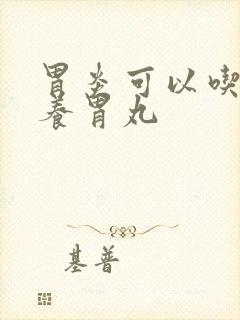 胃炎可以喫
养胃丸
基普